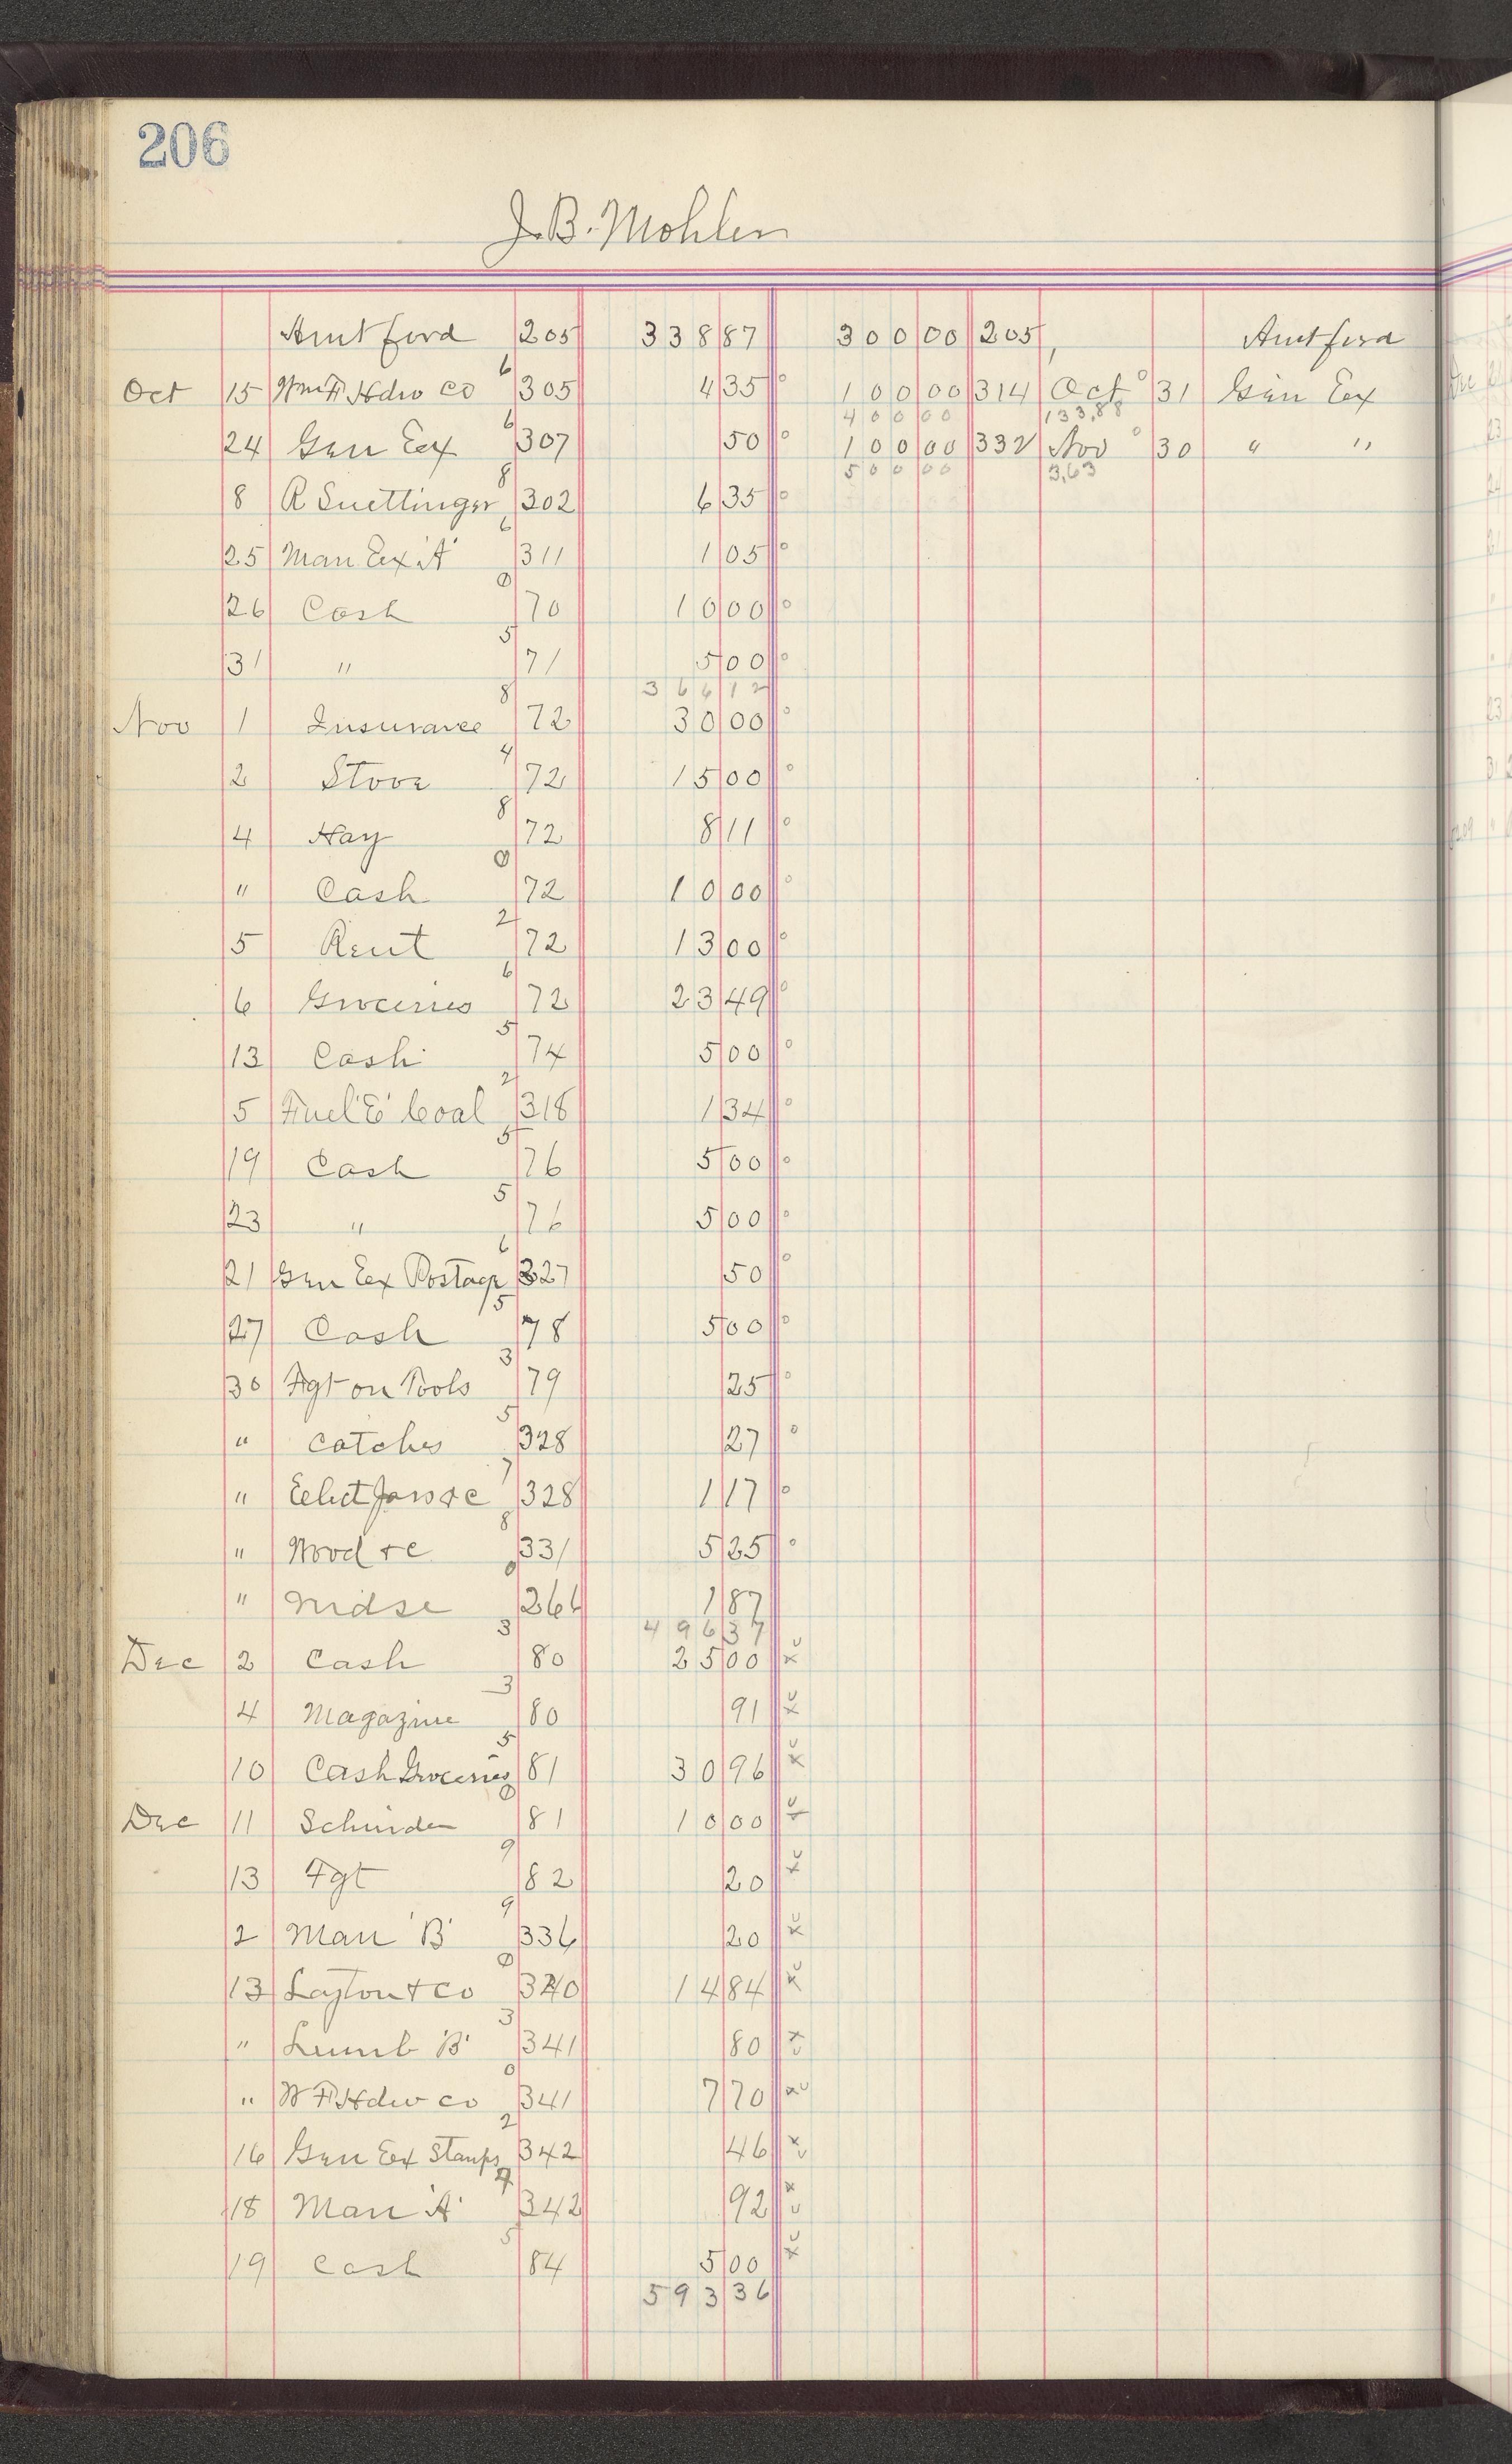 206
J. B. Mohler
Amt fwd 205 338 87 300 00 205 Amt fwd
Oct 15 Wm F. Hdw Co 305 4 35 100 00 314 Oct 31 Gen Ex
400 00 133,88
24 Gen Ex 307 50 100 00 332 Nov 30 " "
500 00 3,63
8 R Suettinger 302 6 35
25 Man Ex 'A' 311 1 05
26 Cash 70 10 00
31 " 71 5 00
366 12
Nov 1 Insurance 72 30 00
2 Stove 72 15 00
4 Hay 72 8 11
" Cash 72 10 00
5 Rent 72 13 00
6 Groceries 72 23 49
13 Cash 74 5 00
5 Fuel 'E' Coal 318 1 34
19 Cash 76 5 00
23 " 76 5 00
21 Gen Ex Postage 327 50
27 Cash 78 5 00
30 Fgt on Tools 79 25
" Catches 328 27
" 328 1 17
" Wood + c 331 5 25
" Mdse 266 1 87
496 37
Dec 2 Cash 80 25 00
4 Magazine 80 91
10 Cash Groceries 81 30 96
Dec 11 Schuider 81 10 00
13 Fgt 82 20
2 Man 'B' 336 20
13 Layton + Co 340 14 84
" Lumb 'B' 341 80
" W F Hdw Co 341 7 70
16 Gen Ex Stamps 342 46
18 Man 'A' 342 92
19 Cash 84 5 00
593 36